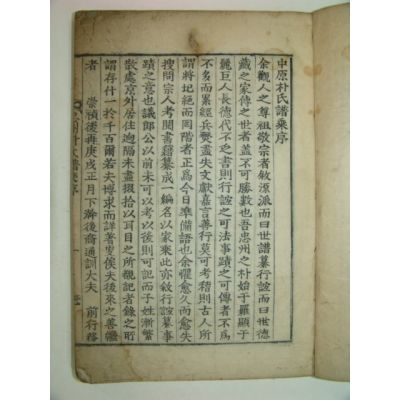 中原朴氏譜乗序
余觀人之尊祖敬宗者敘源派而曰世譜纂行誼而曰世德
藏之家傳之世者盖不可勝數也吾忠州之朴始于羅顯于
麗巨人長德代不乏書則行誼之可記事蹟之可傳者不爲
不多而累經兵燹盡失文獻嘉言善行莫可考稽則古人所
謂存什一於千百而罔階者正爲今日準備語也余懼愈久而愈失
搜問宗人考閱書籍纂成一編名以家乘此亦敘行誼纂事
蹟之意也議郎公以前未可以考以後則可記而子姓漸繁
散處京外居住逈隔未盡掇拾以耳目之所觀記者錄之所
謂存什一於千百爾若夫博求而詳著叟俟夫後來之善繼
者 崇禎後再庚戌正月下澣後裔通訓大夫 前行移